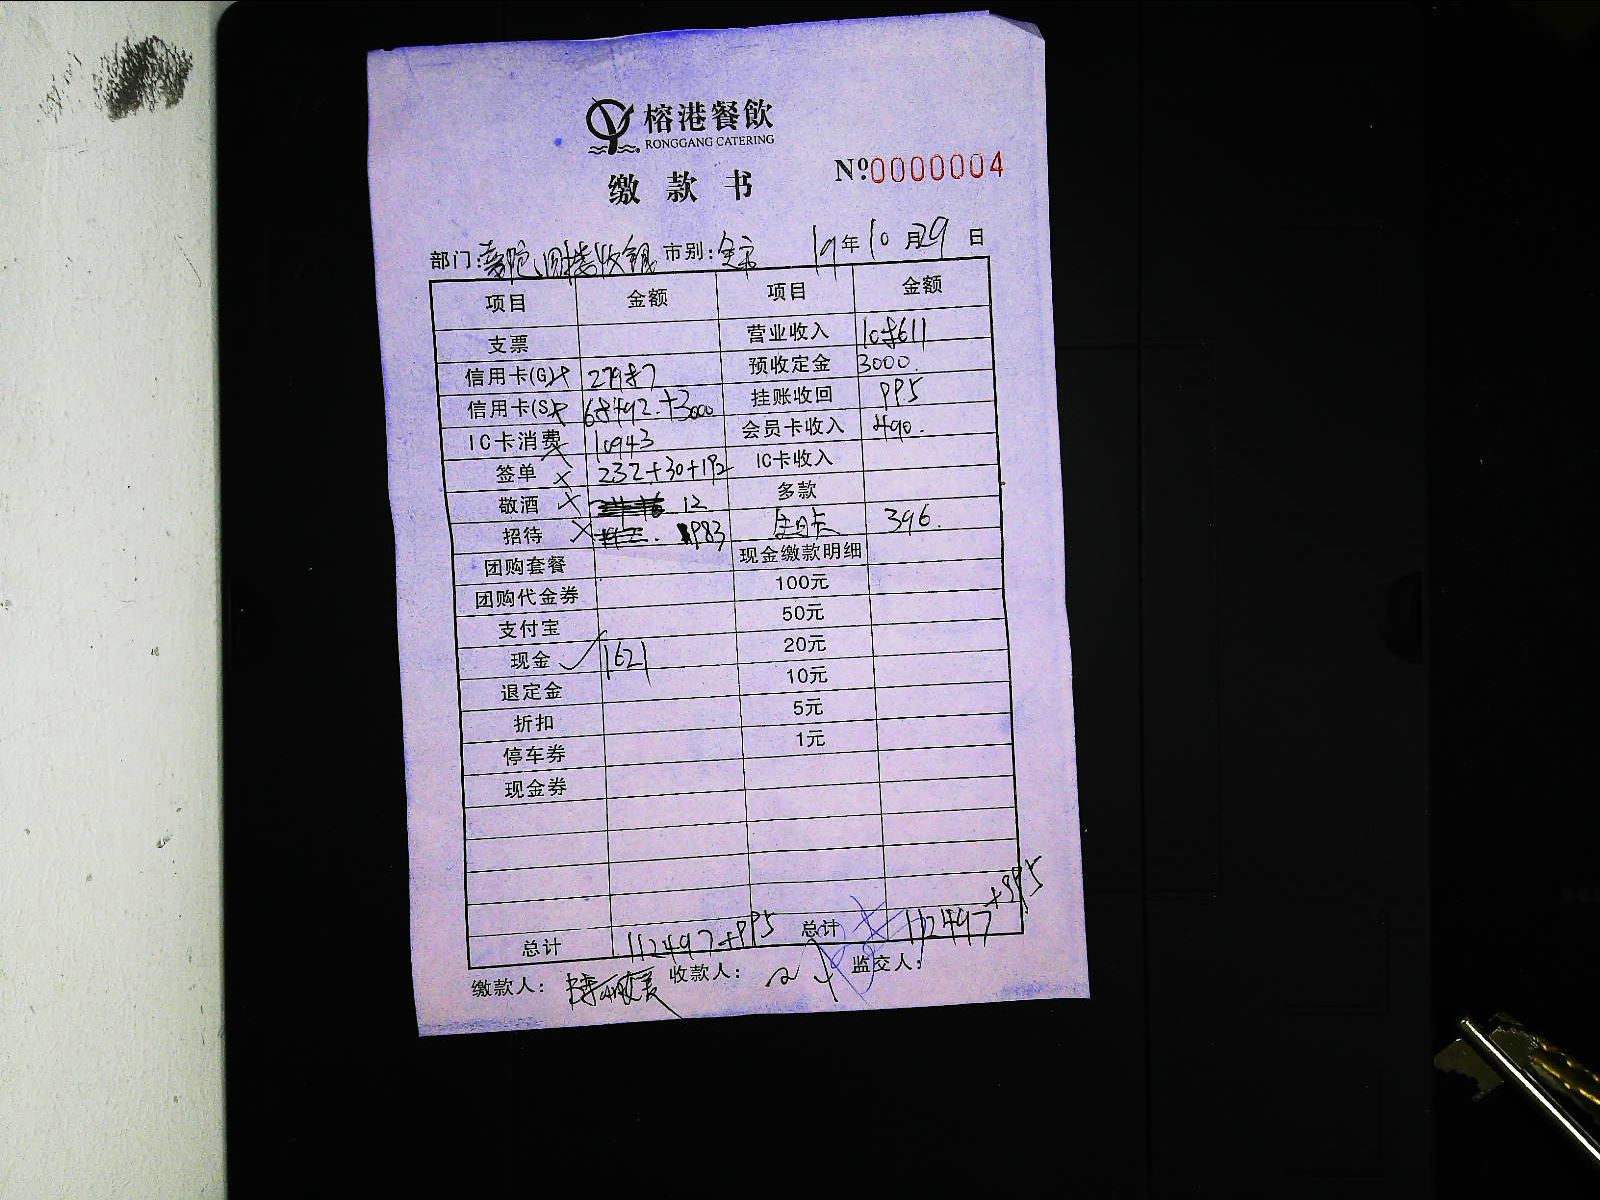 榕港餐飲
RONGGANG CATERING
缴款书
Nº0000004
部门: 收银 市别: 19年10月29日
项目 金额 项目 金额
支票 营业收入 108611
信用卡(G)× 27987 预收定金 3000.
信用卡(S)× 68492.+3000 挂账收回 995
IC卡消费× 10943 会员卡收入 490.
签单 × 232+30+192 IC卡收入
敬酒 × 12 多款
招待 × 983 396.
团购套餐 现金缴款明细
团购代金券 100元
支付宝 50元
现金 ✓ 1621 20元
退定金 10元
折扣 5元
停车券 1元
现金券
总计 112497+995 总计 112497+995
缴款人: 收款人: 监交人: